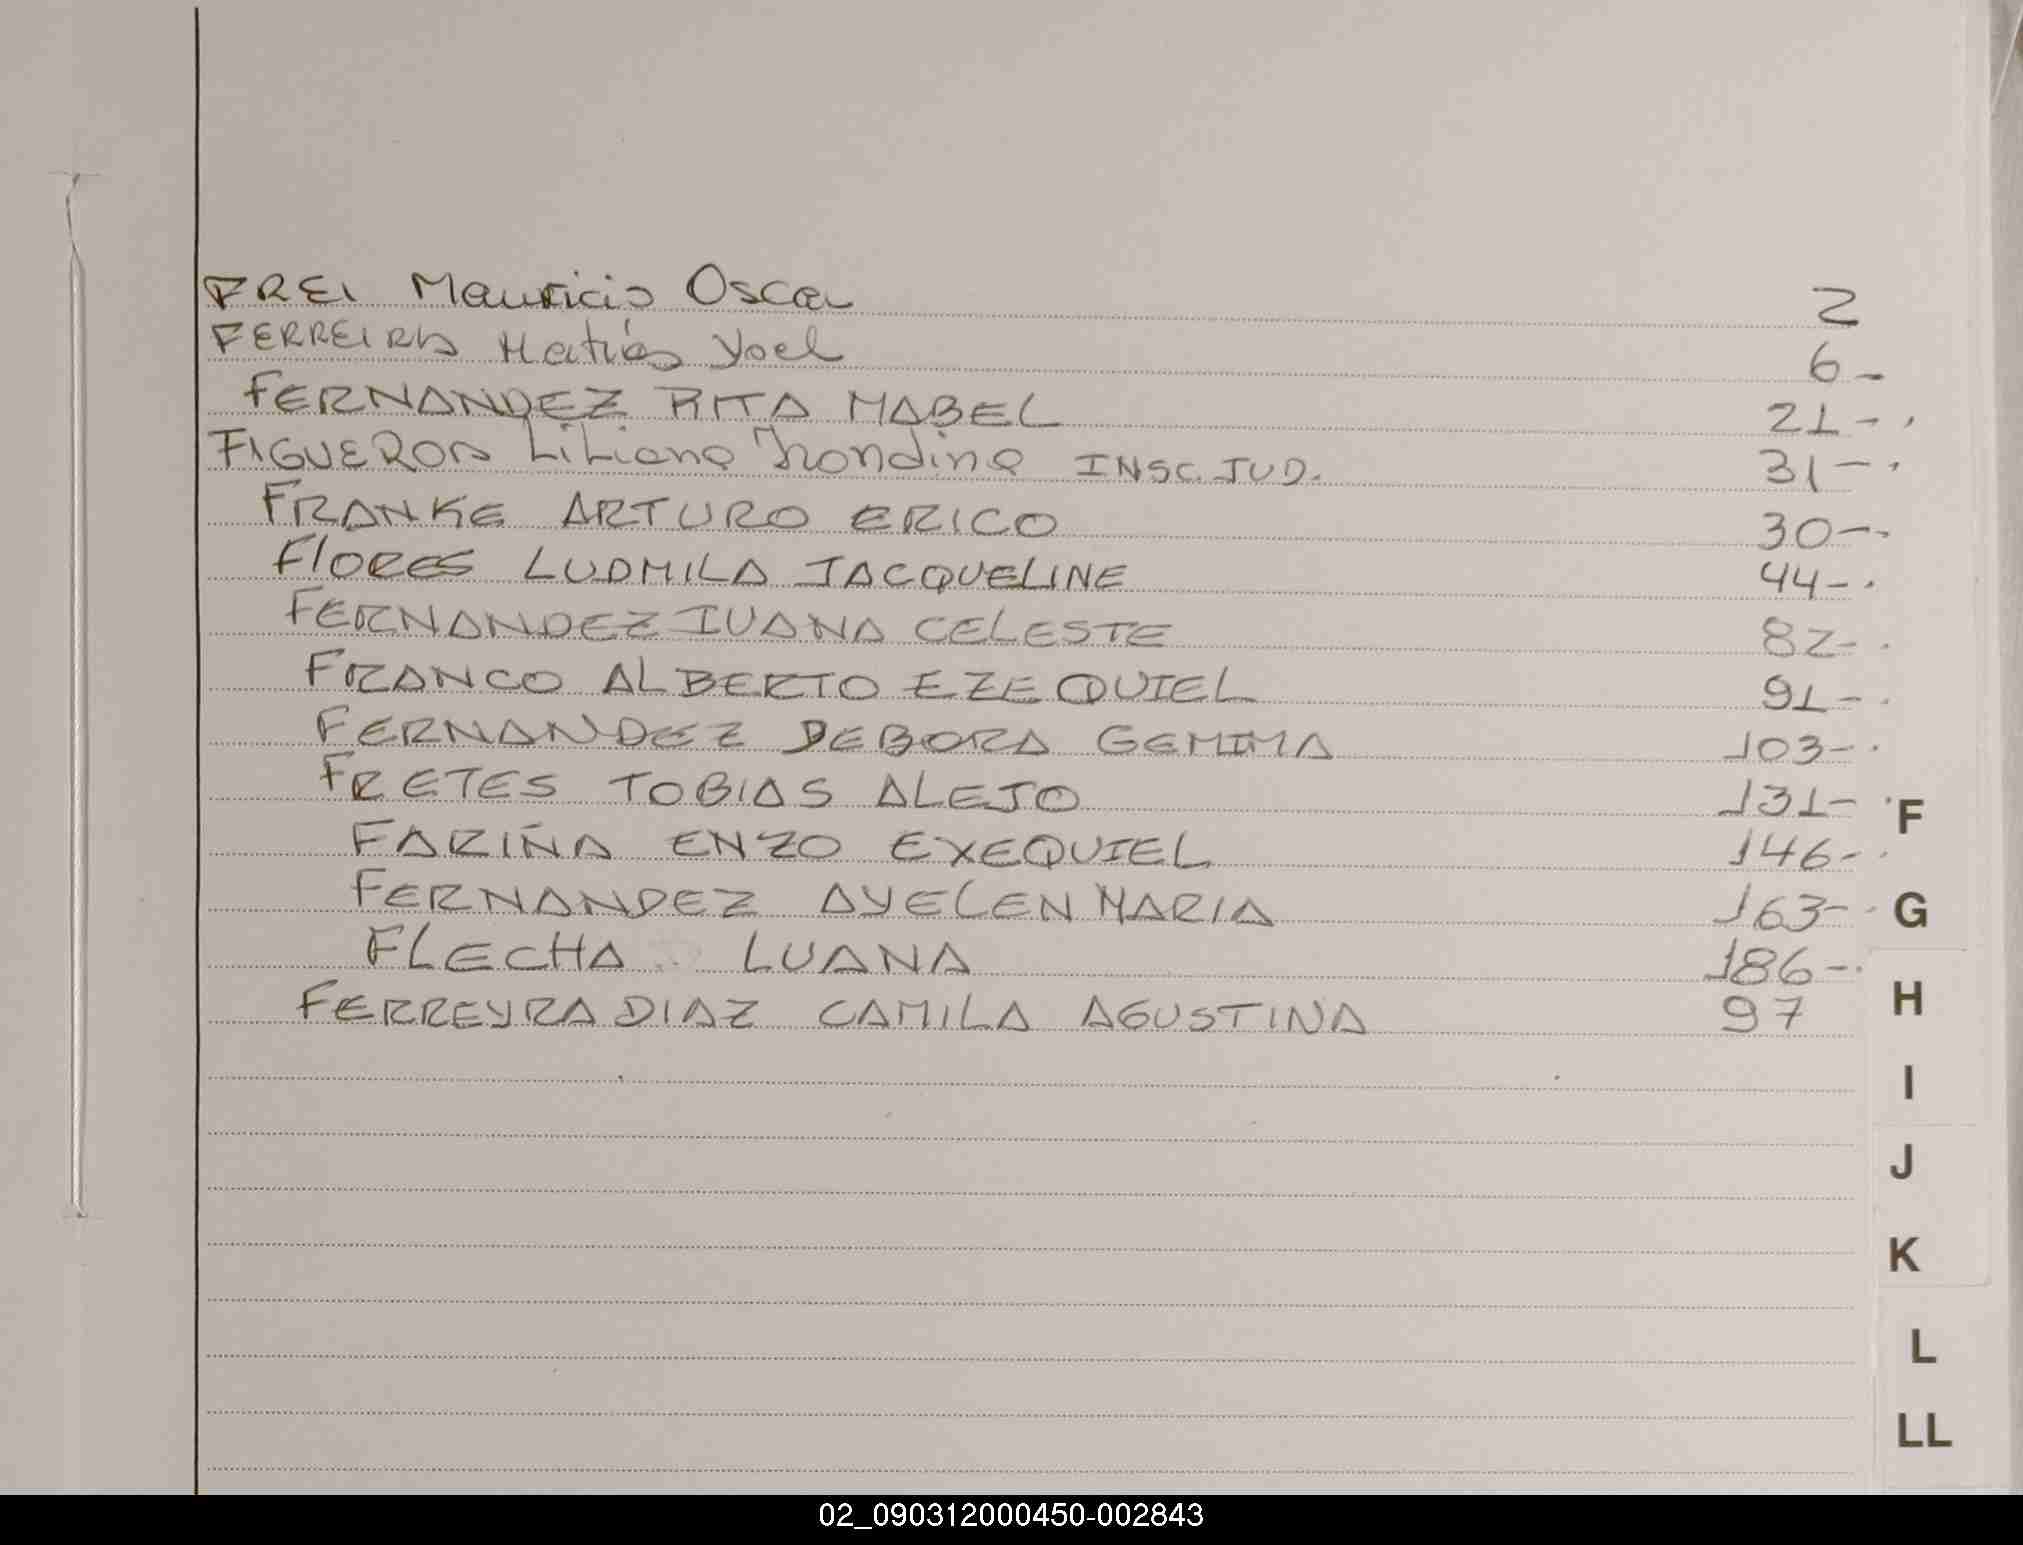 FREI Mauricio Oscar 2
FERREIRA Matías Yoel 6-
FERNANDEZ RITA MABEL 21-.
FIGUEROA Liliana INSC. JUD. 31-.
FRANKE ARTURO ERICO 30-.
FLORES LUDMILA JACQUELINE 44-.
FERNANDEZ IUANA CELESTE 82-.
FRANCO ALBERTO EZEQUIEL 91-.
FERNANDEZ DEBORA GEMIMA 103-.
FRETES TOBIAS ALEJO 131-.
FARIÑA ENZO EXEQUIEL 146-.
FERNANDEZ AYELEN MARIA 163-.
FLECHA LUANA 186-.
FERREYRA DIAZ CAMILA AGUSTINA 97
F
G
H
I
J
K
L
LL
02_090312000450-002843